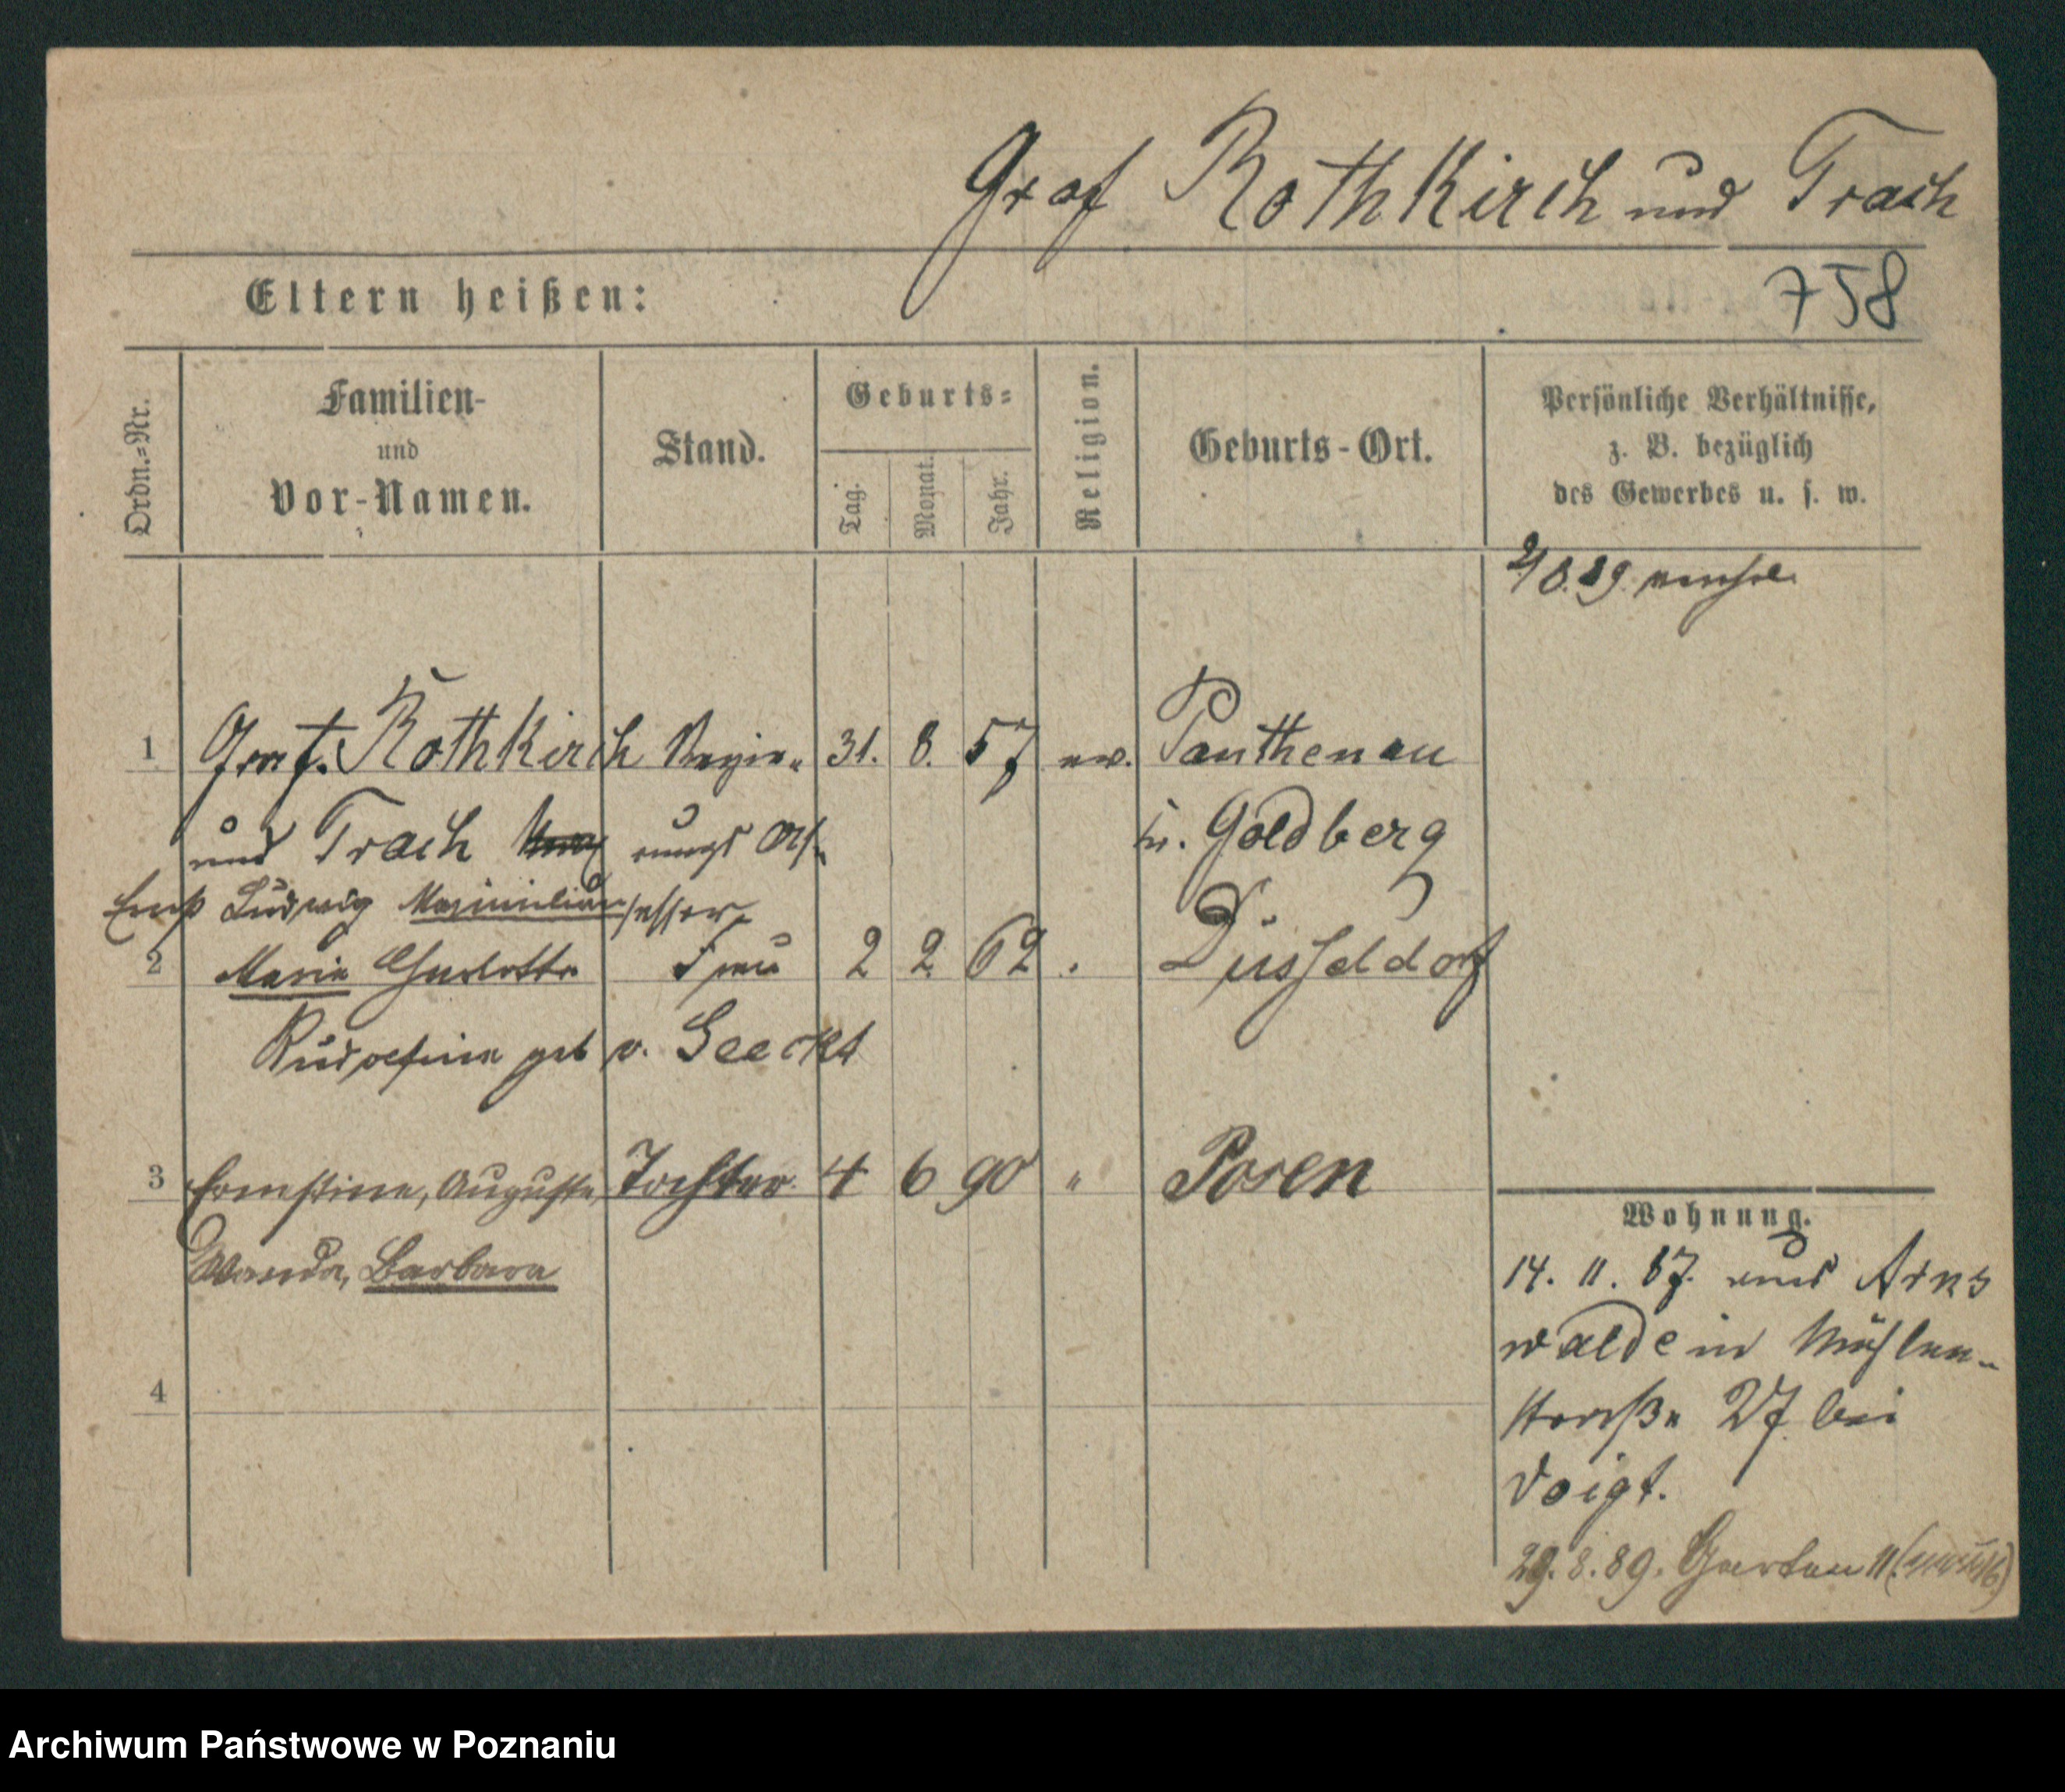 Graf Rothkirch und Trach
758
Eltern heißen:
Ordn.-Nr.
Familien-
und
Vor-Namen.
Stand.
Geburts-
Tag.
Monat.
Jahr.
Religion.
Geburts-Ort.
Persönliche Verhältnisse,
z. B. bezüglich
des Gewerbes u. s. w.
1 Graf. Rothkirch Regie- 31. 8. 57 ev. Panthenau
und Trach rungs As- Goldberg
Ernst Ludwig Maximilian sessor
2 Marie Charlotte Frau 2 2 62 Düsseldorf
Rudolfine geb v. Seeckt
3 Ernestine, Auguste Tochter 4 6 90 " Posen
Wanda, Barbara
4
Wohnung.
14. 11. 87. aus Arns
walde in Mühlen-
straße 27 bei
Voigt.
29.8.89. Garten 11
Archiwum Państwowe w Poznaniu